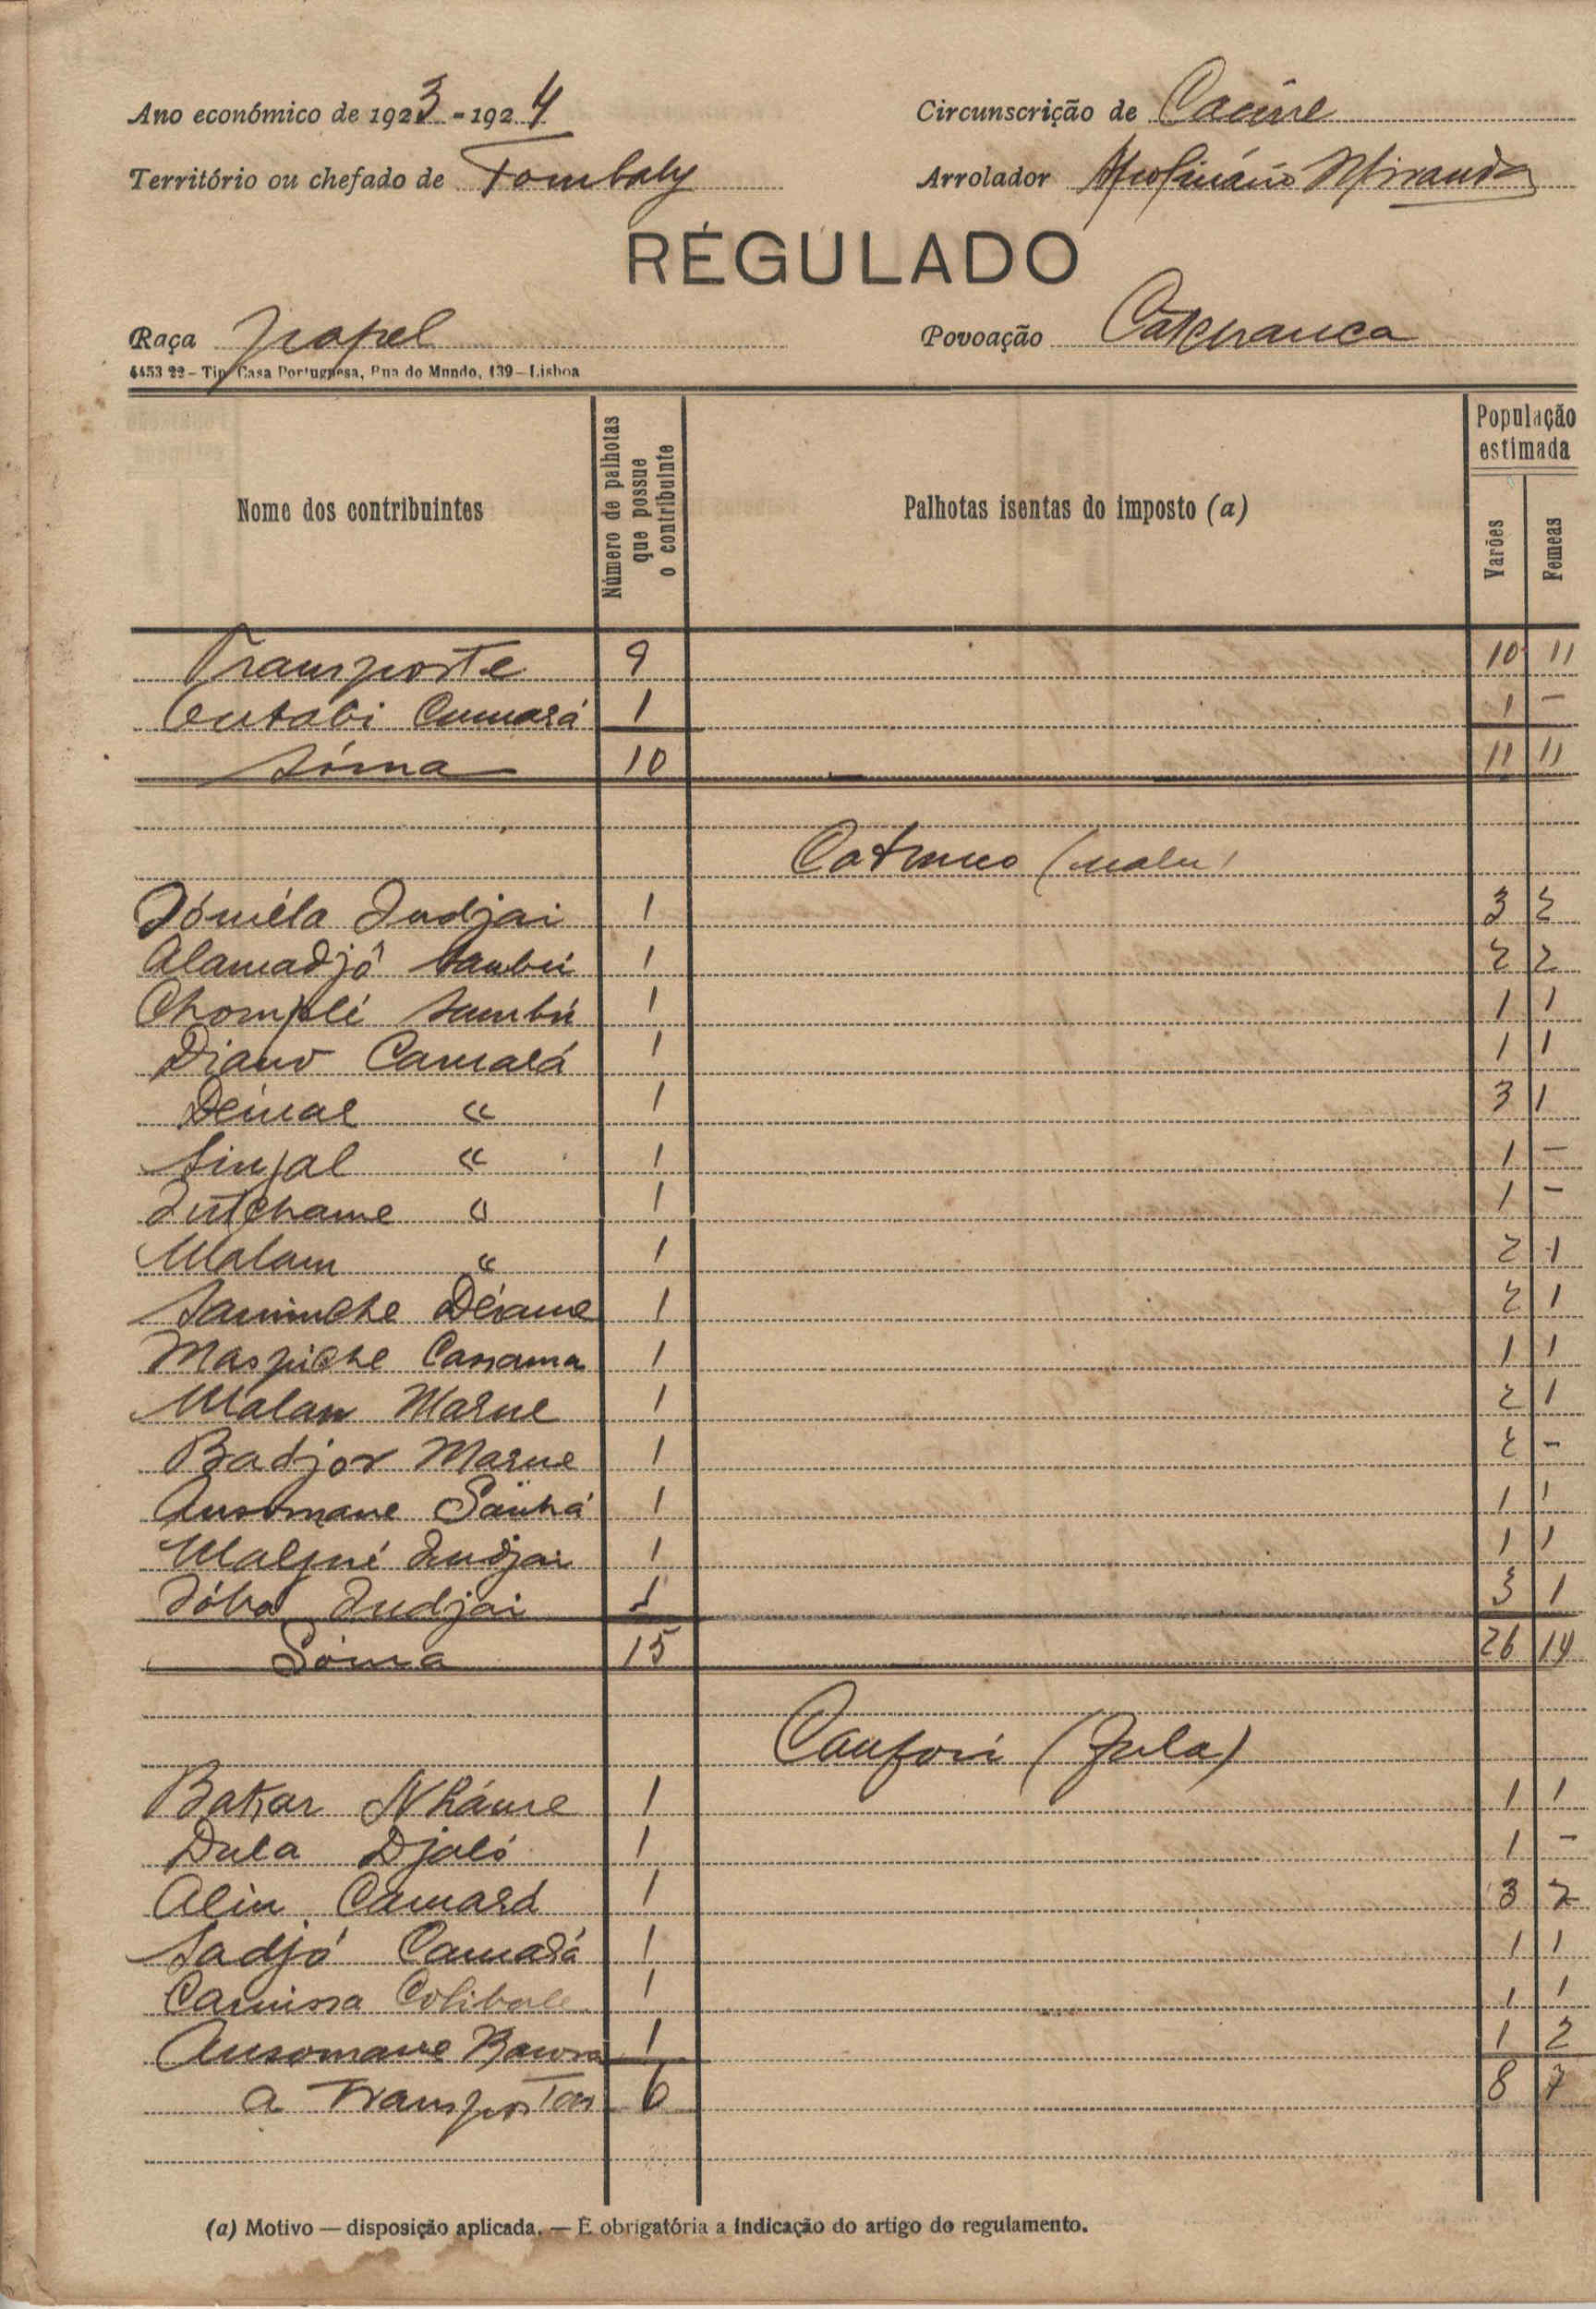 Ano económico de 1923-1924
Circunscrição de Cacine
Território ou chefado de Tombaly
Arrolador Miranda
RÉGULADO
Raça papel
Povoação Catchanca
4453 22 – Tip. Casa Portuguesa, Rua do Mundo, 139 – Lisboa
Nome dos contribuintes
Número de palhotas que possue o contribuinte
Palhotas isentas do imposto (a)
População estimada
Varões
Femeas
Transporte 9 10 11
Camará 1 1 –
Sôma 10 11 11
Catunco (nalu)
Jóméla Indjai 1 3 2
Alamadjô Sambú 1 2 2
Chomplé Sambú 1 1 1
Diano Camará 1 1 1
Deimar « 1 3 1
Sinfal « 1 1 –
Intchame « 1 1 –
Malam « 1 2 1
Saninche Déiame 1 2 1
Maspiche Cassama 1 1 1
Malan Marne 1 2 1
Badjor Marne 1 2 –
Ansomane Sanhá 1 1 1
Malfné Indjai 1 1 1
Jóba Indjai 1 3 1
Sôma 15 26 14
Caufori (Fula)
Bakar Nháme 1 1 1
Dula Djaló 1 1 –
Aliu Camará 1 3 2
Sadjó Camará 1 1 1
Camissa 1 1 1
Ansomane 1 1 2
a Transportar 6 8 7
(a) Motivo — disposição aplicada. — É obrigatória a indicação do artigo do regulamento.